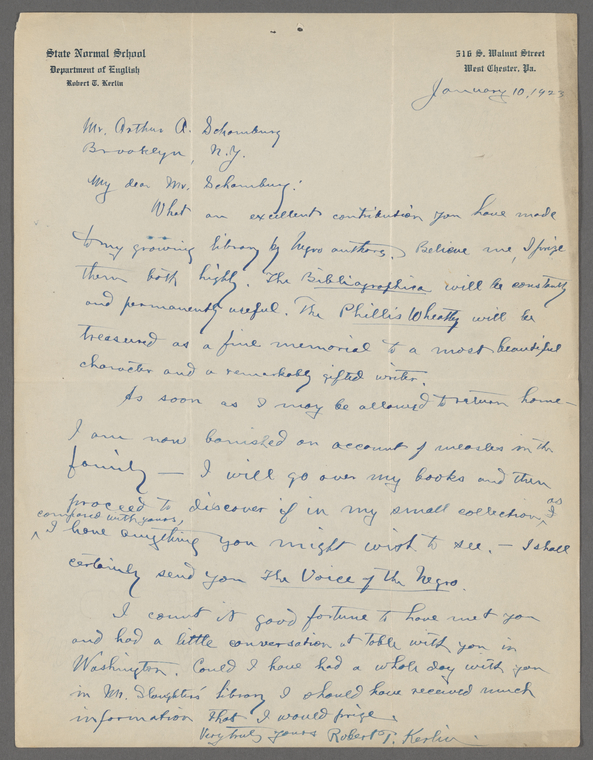 State Normal School
Department of English
Robert T. Kerlin
516 S. Walnut Street
West Chester, Pa.
January 10, 1923
Mr. Arthur A. Schomburg
Brooklyn, N.Y.
My dear Mr. Schomburg:
What an excellent contribution you have made
to my growing library by Negro authors. Believe me, I prize
them both highly. The Bibliographica will be constantly
and permanently useful. The Phillis Wheatly will be
treasured as a fine memorial to a most beautiful
character and a remarkably gifted writer.
As soon as I may be allowed to return home —
I am now banished on account of measles in the
family — I will go over my books and then
proceed to discover if in my small collection, as
compared with yours, I
I have anything you might wish to see. — I shall
certainly send you The Voice of the Negro.
I count it good fortune to have met you
and had a little conversation at table with you in
Washington. Could I have had a whole day with you
in Mr. Slaughter's library I should have received much
information that I would prize.
Very truly yours Robert T. Kerlin.